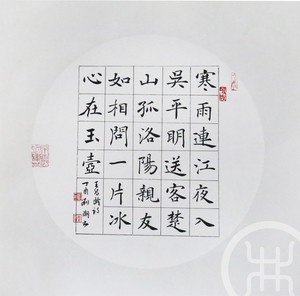 寒雨連江夜入
吳平明送客楚
山孤洛陽親友
如相問一片冰
心在玉壺
王昌齡詩
丁酉